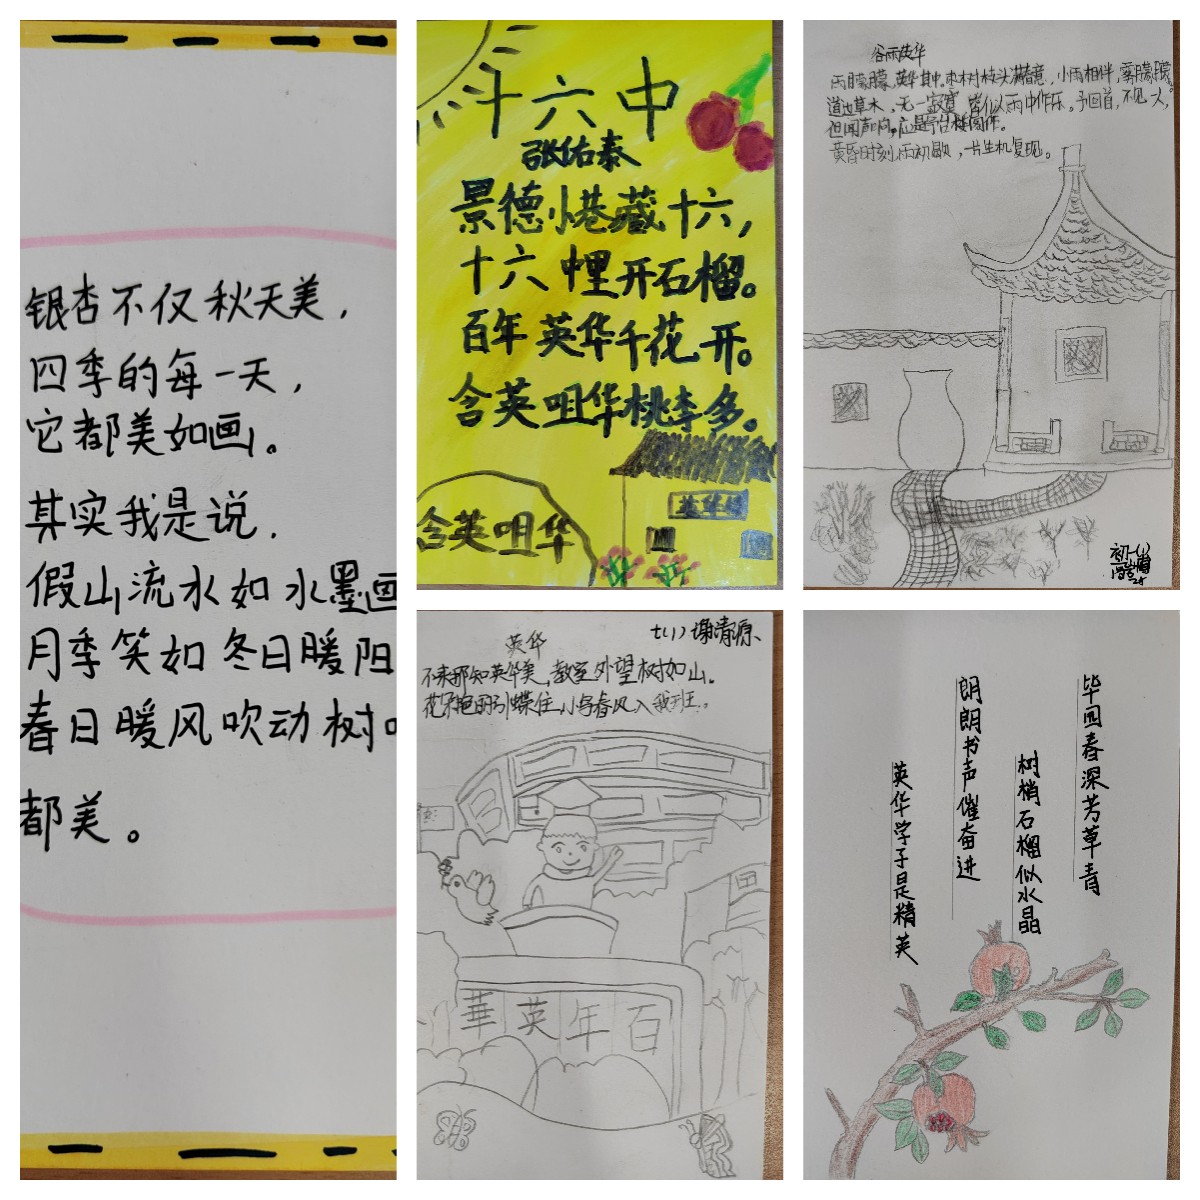 银杏不仅秋天美，
四季的每一天，
它都美如画。
其实我是说，
假山流水如水墨画
月季笑如冬日暖阳
春日暖风吹动树
都美。
十六中
张佑泰
景德小巷藏十六，
十六中里开石榴。
百年英华千花开。
含英咀华桃李多。
英华
含英咀华
谷雨英华
雨朦朦，英华其中。木树枝头满春意，小雨相伴，雾朦朦。
道边草木，无一寂寞，皆似雨中作乐。予回首，不见人，
但闻声响。应是予台楼阁作。
黄昏时刻雨初歇，一片生机复现。
初一(1)
七(1)谢清源
英华
不来那知英华美，教室外望树如山。
花不艳丽引蝶住，小鸟春风入我班。
百年英華
毕园春深芳草青
树梢石榴似水晶
朗朗书声催奋进
英华学子是精英